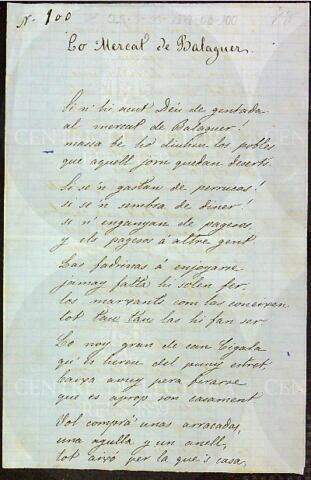 N. 100
Lo Mercat de Balaguer.
Si n' hi acut Déu de gentada
al mercat de Balaguer!
massa be ho diuhen los pobles
que aquell jorn quedan deserts.
Si se 'n gastan de perrucas!
si se 'n sembra de diner!
si n' enganyan de pagesos,
y els pagesos á altre gent.
Las fadrinas á enjoyarse
jamay falta hi solen fer,
los marxants com las coneixen
tot tau tau las hi fan ser
Lo noy gran de can Cigala
qu' es hereu del puny estret
baixa avuy pera firarse
que es aprop son casament
Vol comprá unas arracadas,
una agulla y un anell,
tot aixó per la que 's casa,